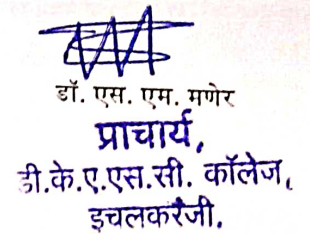 डॉ. एस. एम. मणेर
प्राचार्य,
डी.के.ए.एस.सी. कॉलेज,
इचलकरंजी.